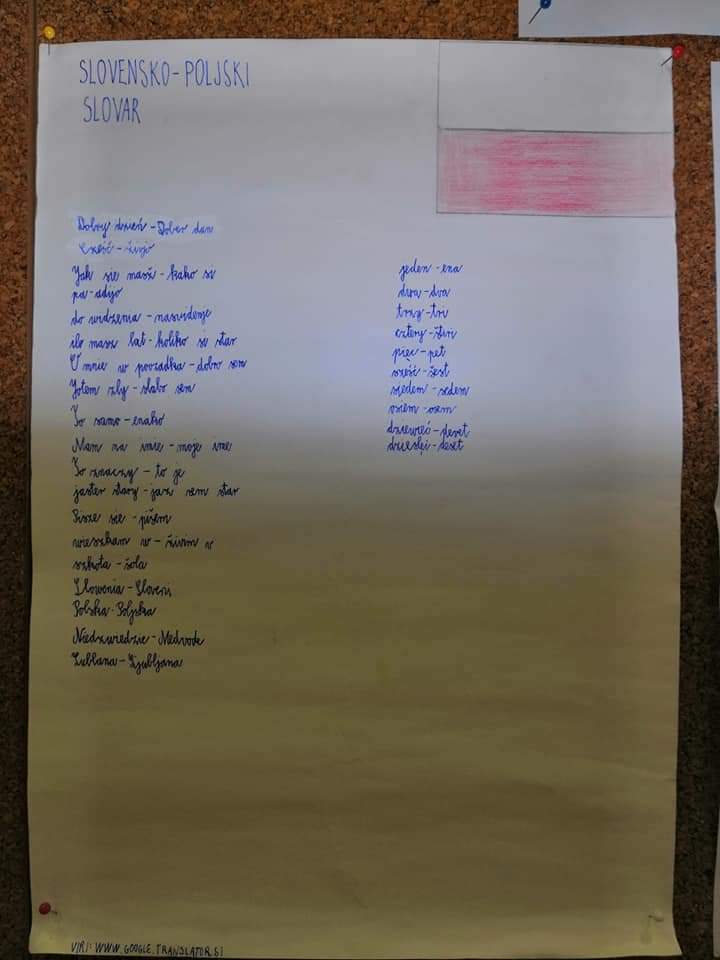 SLOVENSKO-POLJSKI
SLOVAR
Dobry dzień - Dober dan
Cześć - živjo
Jak się masz - kako si
pa - adijo
do widzenia - nasvidenje
ile masz lat - koliko si star
U mnie w porzadku - dobro sem
Jotem zly - slabo sem
To samo - enako
Mam na imie - moje ime
To znaczy - to je
jaster stary - jaz sem star
Pisze sie - pišem
wieszkam w - živim v
szkoła - šola
Słowenia - Sloveni
Polska - Poljska
Niedzwiedzie - Medvode
Lublana - Ljubljana
jeden - ena
dwa - dva
trzy - tri
cztery - štiri
pięc - pet
sześć - šest
siedem - sedem
osiem - osem
dziewieć - devet
dziesięi - deset
VIRI: WWW.GOOGLE.TRANSLATOR.SI